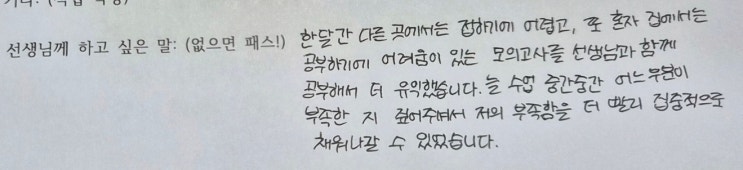 선생님께 하고 싶은 말: (없으면 패스!) 한달간 다른 곳에서는 접하기에 어렵고, 또 혼자 집에서는
공부하기에 어려움이 있는 모의고사를 선생님과 함께
공부해서 더 유익했습니다. 늘 수업 중간중간 어느부분이
부족한 지 짚어주셔서 저의 부족함을 더 빨리 집중적으로
채워나갈 수 있었습니다.